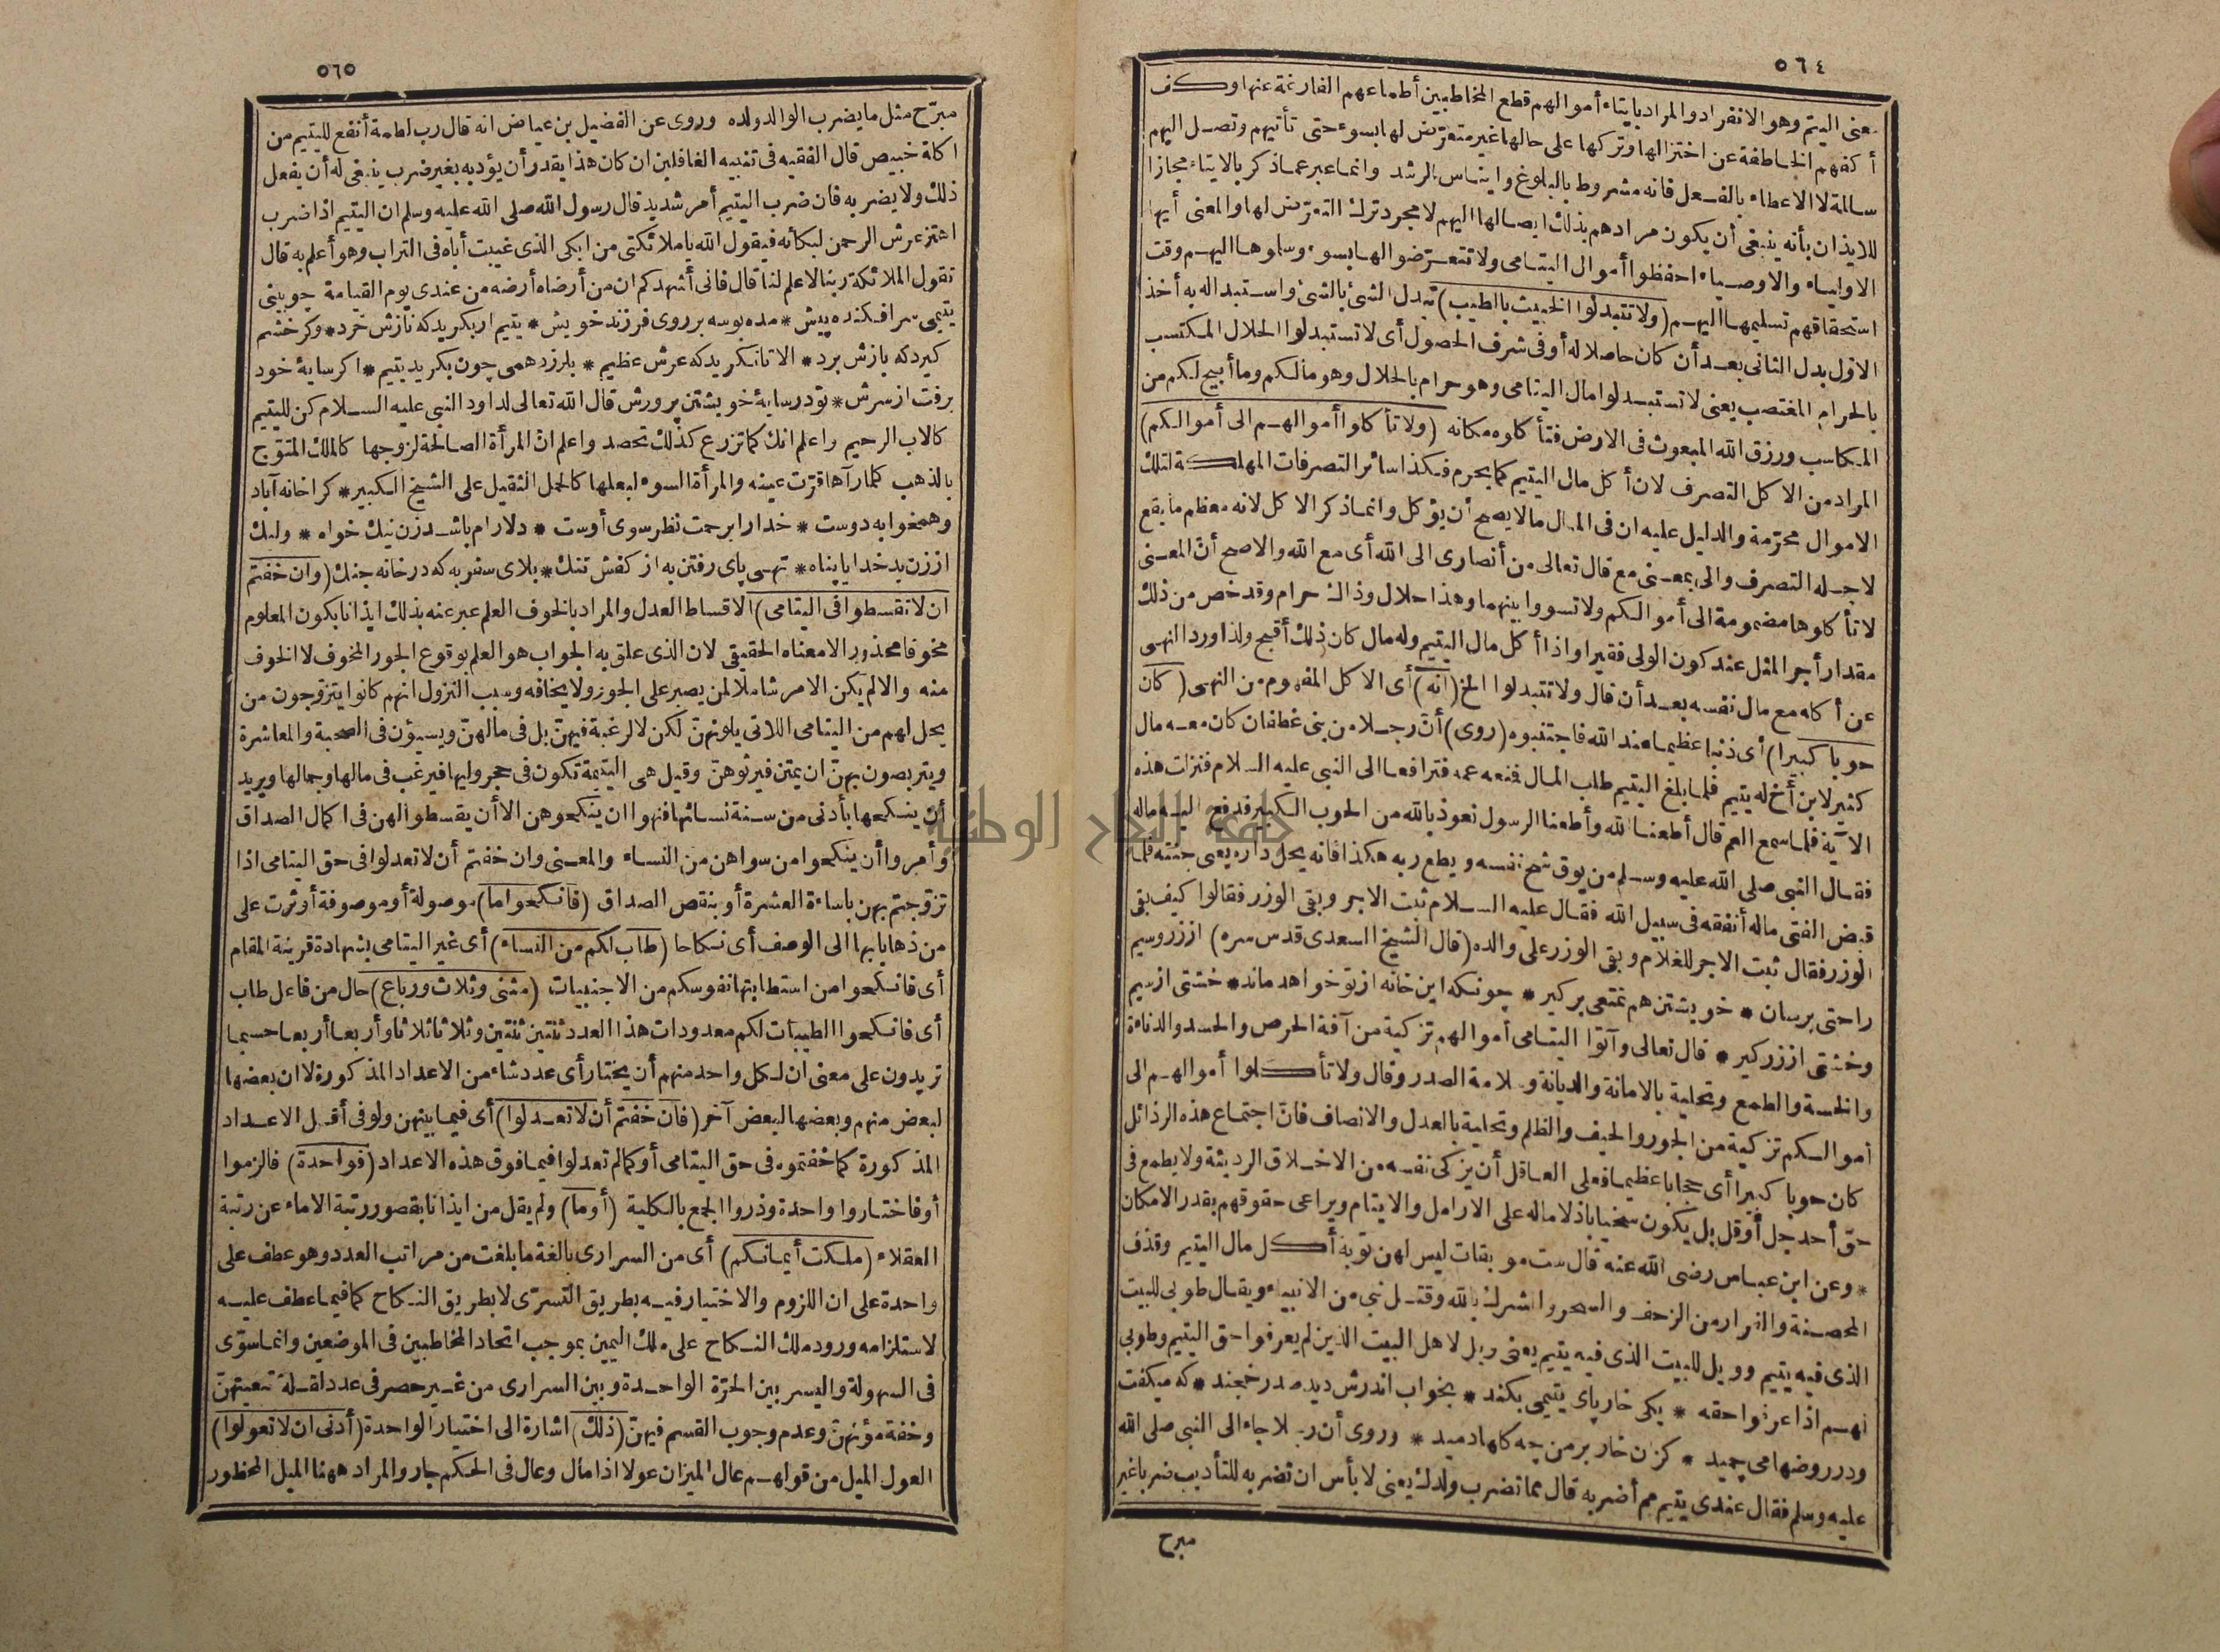 ٥٦٤
معنى اليتم وهو الانفراد والمراد بايتاء أموالهم قطع المخاطبين أطماعهم الفارغة عنها وكف
أكفهم الخاطفة عن اختزالها وتركها على حالها غير متعرّض لها بسوء حتى تأتيهم وتصل اليهم
سالمة لا الاعطاء بالفعل فانه مشروط بالبلوغ وايناس الرشد وانما عبر عما ذكر بالايتاء مجازا
للايذان بأنه ينبغى أن يكون مرادهم بذلك ايصالها اليهم لا مجرد ترك التعرّض لها والمعنى أيها
الاولياء والاوصياء احفظوا أموال اليتامى ولا تتعرّضوا لها بسوء وسلوها اليهم وقت
استحقاقهم تسليمها اليهم (ولا تتبدلوا الخبيث بالطيب) تبدل الشئ بالشئ واستبداله به أخذ
الاوّل بدل الثانى بعد أن كان حاصلا له أو فى شرف الحصول أى لا تستبدلوا الحلال المكتسب
بالحرام المغتصب يعنى لا تستبدلوا مال اليتامى وهو حرام بالحلال وهو مالكم وما أبيح لكم من
المكاسب ورزق الله المبعوث فى الارض فتأكلوه مكانه (ولا تأكلوا أموالهم الى أموالكم)
المراد من الاكل التصرف لان أكل مال اليتيم كما يحرم فكذا سائر التصرفات المهلكة لتلك
الاموال محرّمة والدليل عليه ان فى المال مالا يصح أن يؤكل وانما ذكر الاكل لانه معظم ما يقع
لاجله التصرف والى بمعنى مع قال تعالى من أنصارى الى الله أى مع الله والاصح أنّ المعنى
لا تأكلوها مضمومة الى أموالكم ولا تسووا بينهما وهذا حلال وذاك حرام وقد خص من ذلك
مقدار أجر المثل عند كون الولى فقيرا واذا أكل مال اليتيم وله مال كان ذلك أقبح ولذا ورد النهى
عن أكله مع مال نفسه بعد أن قال ولا تتبدلوا الخ (انه) أى الاكل المفهوم من النهى (كان
حوبا كبيرا) أى ذنبا عظيما عند الله فاجتنبوه (روى) أنّ رجلا من بنى غطفان كان معه مال
كثير لابن أخ له يتيم فلما بلغ اليتيم طلب المال فمنعه عمه فترافعا الى النبى عليه السلام فنزلت هذه
الآية فلما سمع العم قال أطعنا الله وأطعنا الرسول نعوذ بالله من الحوب الكبير فدفع اليه ماله
فقال النبى صلى الله عليه وسلم من يوق شح نفسه ويطع ربه هكذا فانه يحل داره يعنى جنته فلما
قبض الفتى ماله أنفقه فى سبيل الله فقال عليه السلام ثبت الاجر وبقى الوزر فقالوا كيف بقى
الوزر فقال ثبت الاجر للغلام وبقى الوزر على والده (قال الشيخ السعدى قدس سره) از زر وسيم
راحتى برسان * خويشتن هم تمتعى بركير * چونكه اين خانه از تو خواهد ماند * خشتى از سيم
وخشتى از زر كير * قال تعالى وآتوا اليتامى أموالهم تزكية من آفة الحرص والحسد والدناءة
والخسة والطمع وتحلية بالامانة والديانة وسلامة الصدر وقال ولا تأكلوا أموالهم الى
أموالكم تزكية من الجور والحيف والظلم وتحلية بالعدل والانصاف فانّ اجتماع هذه الرذائل
كان حوبا كبيرا أى حجابا عظيما فعلى العاقل أن يزكى نفسه من الاخلاق الرديئة ولا يطمع فى
حق أحد جل أو قل بل يكون سخيا باذلا ماله على الارامل والايتام ويراعى حقوقهم بقدر الامكان
* وعن ابن عباس رضى الله عنه قال ست موبقات ليس لهن توبة أكل مال اليتيم وقذف
المحصنة والفرار من الزحف والسحر والشرك بالله وقتل نبى من الانبياء ويقال طوبى للبيت
الذى فيه يتيم وويل للبيت الذى فيه يتيم يعنى ويل لاهل البيت الذين لم يعرفوا حق اليتيم وطوبى
لهم اذا عرفوا حقه * يكى خار پاى يتيمى بكند * بخواب اندرش ديد صدر خجند * كه ميكفت
ودر روضها مى چميد * كزان خار بر من چه كلها دميد * وروى أن رجلا جاء الى النبى صلى الله
عليه وسلم فقال عندى يتيم مم أضربه قال مما تضرب ولدك يعنى لا بأس ان تضربه للتأديب ضربا غير
مبرح
٥٦٥
مبرّح مثل ما يضرب الوالد ولده وروى عن الفضيل بن عياض انه قال رب لطمة أنفع لليتيم من
اكلة خبيص قال الفقيه فى تنبيه الغافلين ان كان هذا يقدر أن يؤدبه بغير ضرب ينبغى له أن يفعل
ذلك ولا يضربه فان ضرب اليتيم أمر شديد قال رسول الله صلى الله عليه وسلم ان اليتيم اذا ضرب
اهتز عرش الرحمن لبكائه فيقول الله يا ملائكتى من ابكى الذى غيبت أباه فى التراب وهو أعلم به قال
تقول الملائكة ربنا لا علم لنا قال فانى أشهدكم ان من أرضاه أرضه من عندى يوم القيامة چو بينى
يتيمى سر افكنده پيش * مده بوسه بر روى فرزند خويش * يتيم ار بكريد كه نازش خرد * وكر خشم
كيرد كه بازش برد * الا تا نكريد كه عرش عظيم * بلرزد همى چون بكريد يتيم * اكر سايۀ خود
برفت از سرش * تو در سايۀ خويشتن پرورش قال الله تعالى لداود النبى عليه السلام كن لليتيم
كالاب الرحيم واعلم انك كما تزرع كذلك تحصد واعلم انّ المرأة الصالحة لزوجها كالملك المتوّج
بالذهب كلما رآها قرّت عينه والمرأة السوء لبعلها كالحمل الثقيل على الشيخ الكبير * كرا خانه آباد
وهمخوابه دوست * خدا را برحمت نظر سوى أوست * دلارام باشد زن نيك خواه * وليك
از زن بد خدايا پناه * تهى پاى رفتن به از كفش تنك * بلاى سفر به كه در خانه جنك (وان خفتم
ان لا تقسطوا فى اليتامى) الاقساط العدل والمراد بالخوف العلم عبر عنه بذلك ايذانا بكون المعلوم
مخوفا محذورا لا معناه الحقيقى لان الذى علق به الجواب هو العلم بوقوع الجور المخوف لا الخوف
منه والا لم يكن الامر شاملا لمن يصبر على الجور ولا يخافه وسبب النزول انهم كانوا يتزوّجون من
يحل لهم من اليتامى اللاتى يلونهنّ لكن لا لرغبة فيهنّ بل فى مالهنّ ويسيؤن فى الصحبة والمعاشرة
ويتربصون بهنّ ان يمتن فيرثوهنّ وقيل هى اليتيمة تكون فى حجر وليها فيرغب فى مالها وجمالها ويريد
أن ينكحها بأدنى من سنة نسائها فنهوا ان ينكحوهن الا أن يقسطوا لهن فى اكمال الصداق
وأمروا أن ينكحوا من سواهن من النساء والمعنى وان خفتم أن لا تعدلوا فى حق اليتامى اذا
تزوّجتم بهن باساءة العشرة أو بنقص الصداق (فانكحوا ما) موصولة أو موصوفة أوثرت على
من ذهابا بها الى الوصف أى نكاحا (طاب لكم من النساء) أى غير اليتامى بشهادة قرينة المقام
أى فانكحوا من استطابتها نفوسكم من الاجنبيات (مثنى وثلاث ورباع) حال من فاعل طاب
أى فانكحوا الطيبات لكم معدودات هذا العدد ثنتين ثنتين وثلاثا ثلاثا وأربعا أربعا حسبما
تريدون على معنى ان لكل واحد منهم أن يختار أى عدد شاء من الاعداد المذكورة لا ان بعضها
لبعض منهم وبعضها لبعض آخر (فان خفتم أن لا تعدلوا) أى فيما بينهن ولو فى أقل الاعداد
المذكورة كما خفتموه فى حق اليتامى أو كما لم تعدلوا فيما فوق هذه الاعداد (فواحدة) فالزموا
أو فاختاروا واحدة وذروا الجمع بالكلية (أو ما) ولم يقل من ايذانا بقصور رتبة الاماء عن رتبة
العقلاء (ملكت أيمانكم) أى من السرارى بالغة ما بلغت من مراتب العدد وهو عطف على
واحدة على ان اللزوم والاختيار فيه بطريق التسرّى لا بطريق النكاح كما فيما عطف عليه
لاستلزامه ورود ملك النكاح على ملك اليمين بموجب اتحاد المخاطبين فى الموضعين وانما سوّى
فى السهولة واليسر بين الحرّة الواحدة وبين السرارى من غير حصر فى عدد لقلة تبعيتهنّ
وخفة مؤنهنّ وعدم وجوب القسم فيهنّ (ذلك) اشارة الى اختيار الواحدة (أدنى ان لا تعولوا)
العول الميل من قولهم عال الميزان عولا اذا مال وعال فى الحكم جار والمراد ههنا الميل المحظور
جامعة النجاح الوطنية